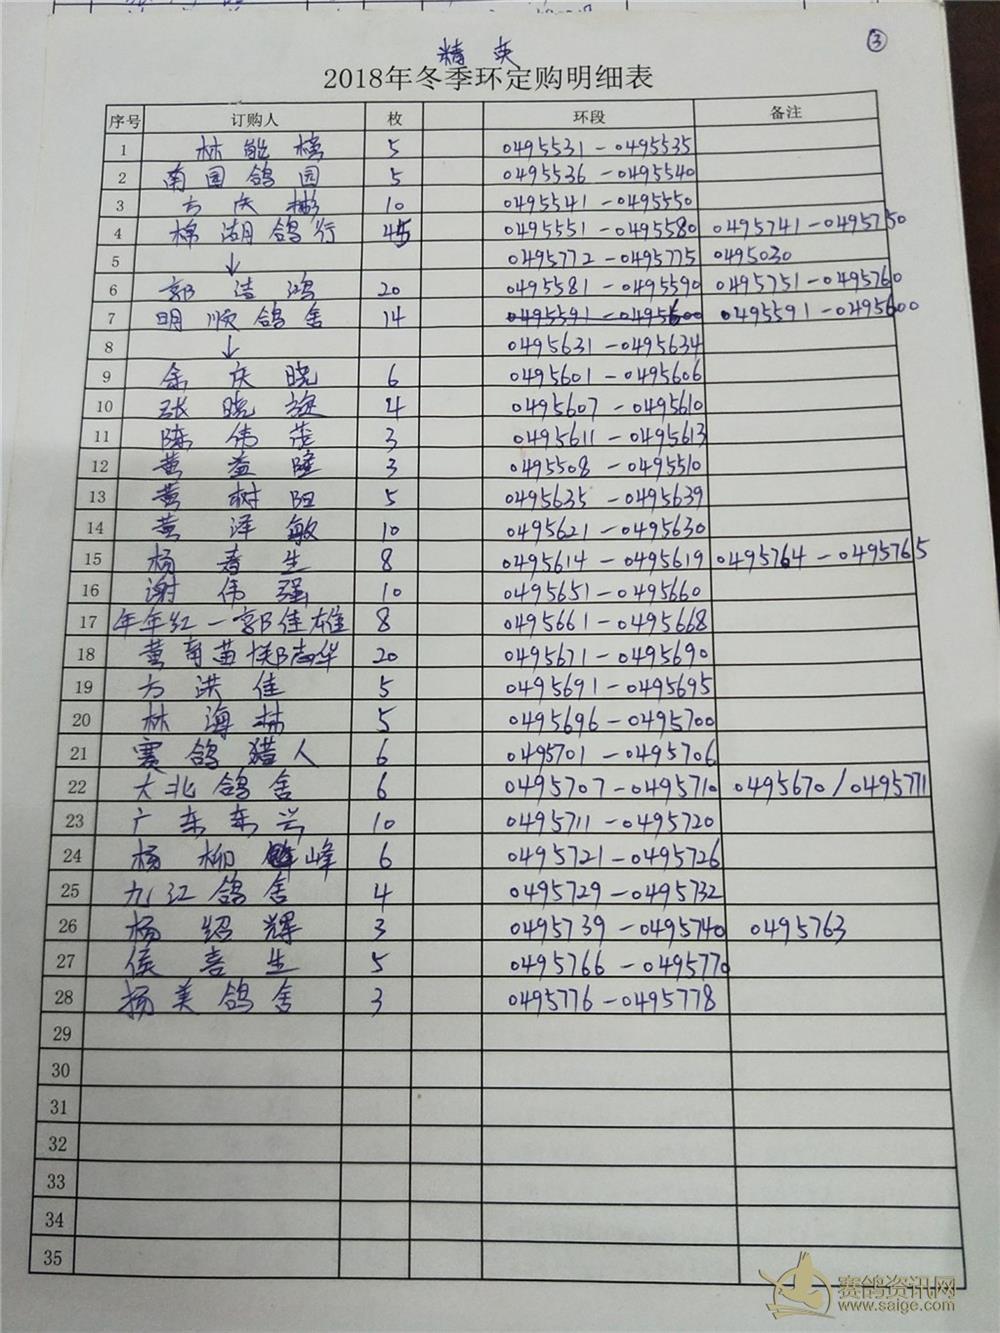 ③
精英
2018年冬季环定购明细表
序号 订购人 枚 环段 备注
1 林 5 0495531-0495535
2 南园鸽园 5 0495536-0495540
3 方庆彬 10 0495541-0495550
4 棉湖鸽行 45 0495551-0495580 0495741-0495750
5 ↓ 0495772-0495775 0495030
6 郭洁鸿 20 0495581-0495590 0495751-0495760
7 明顺鸽舍 14 0495591-0495600 0495591-0495600
8 ↓ 0495631-0495634
9 余庆晓 6 0495601-0495606
10 张晓旋 4 0495607-0495610
11 陈伟茂 3 0495611-0495613
12 黄益隆 3 0495508-0495510
13 黄树阳 5 0495635-0495639
14 黄泽敏 10 0495621-0495630
15 杨春生 8 0495614-0495619 0495764-0495765
16 谢伟强 10 0495651-0495660
17 年年红-郭佳雄 8 0495661-0495668
18 黄 20 0495671-0495690
19 方洪佳 5 0495691-0495695
20 林海林 5 0495696-0495700
21 赛鸽猎人 6 0495701-0495706
22 大北鸽舍 6 0495707-0495710 0495670/0495771
23 广东东兴 10 0495711-0495720
24 杨柳峰 6 0495721-0495726
25 九江鸽舍 4 0495729-0495732
26 杨绍辉 3 0495739-0495740 0495763
27 侯喜生 5 0495766-0495770
28 扬美鸽舍 3 0495776-0495778
29
30
31
32
33
34
35
赛鸽资讯网
www.saige.com